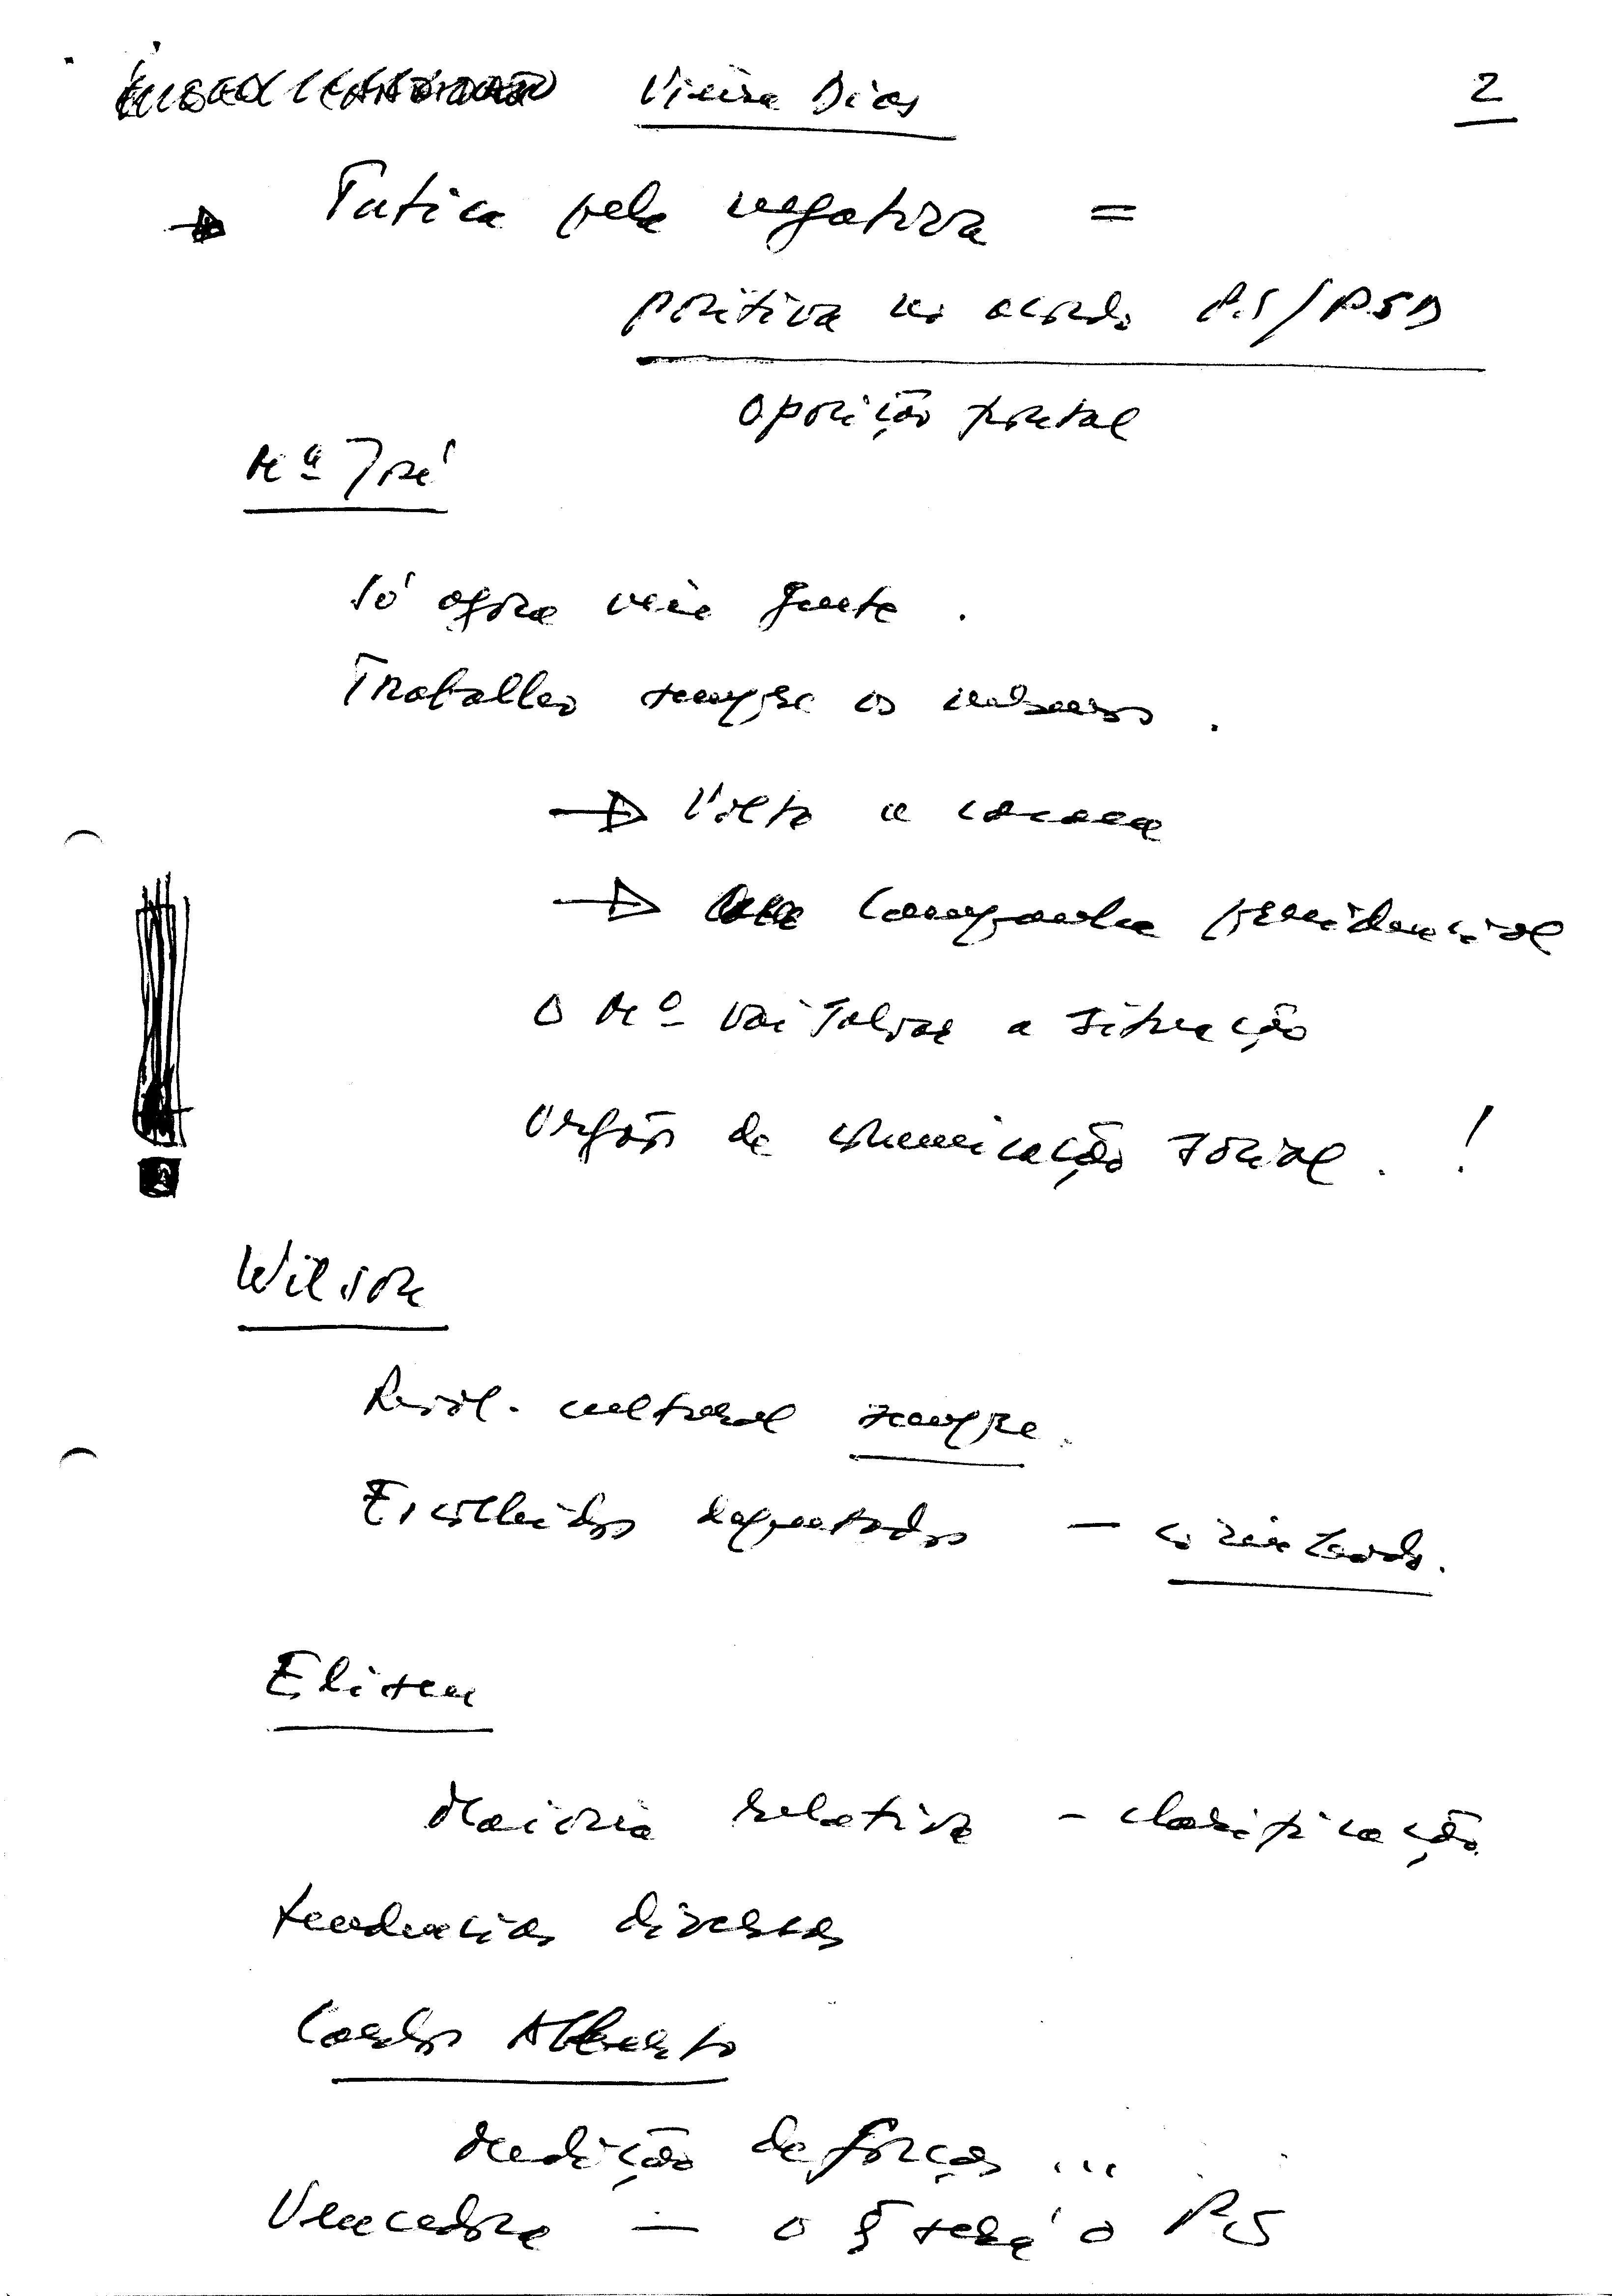 Vieira Dias 2
Tatica pela negativa =
positiva no acordo PS/PSD
oposição frontal
Mª José
Só agora veio gente.
Trabalho sempre os mesmos.
Volta a
Campanha presidencial
O Mº vai salvar a situação
orgãos de comunicação social. !
Wilson
Revol. cultural sempre.
Escolhidos deputados —
Eliseu
Maioria relativa - clarificação
tendencias diversas
Carlos Alberto
Medição de forças ...
Vencedora — o § será o PS